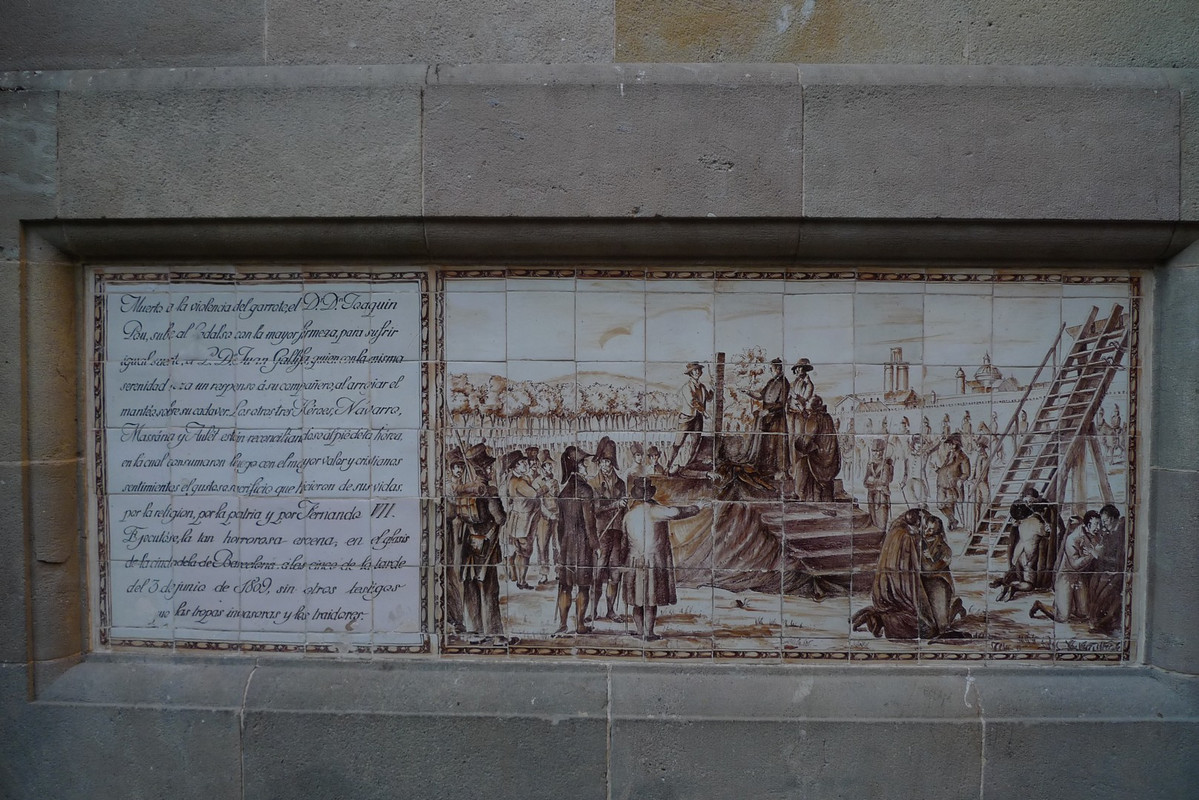 Muerto a la violencia del garrote, el D. Dn Joaquin
Pou, sube al cadalso con la mayor firmeza, para sufrir
igual suerte, el P. Dn Juan Gallifa, quien con la misma
serenidad reza un responso á su compañero, al arrojar el
mantéo sobre su cadaver. Los otros tres Héroes, Navarro,
Masána y Aulét están reconciliandose al pie de la hórca,
en la cual consumaron luego con el mayor valor y cristianos
sentimientos el gustoso sacrificio que hicieron de sus vidas
por la religion, por la patria y por Fernando VII.
Ejecutóse, la tan horrorosa escena; en el glasis
de la ciudadela de Barcelona a las cinco de la tarde
del 3 de junio de 1809, sin otros testigos
las tropas invasoras y los traidores.